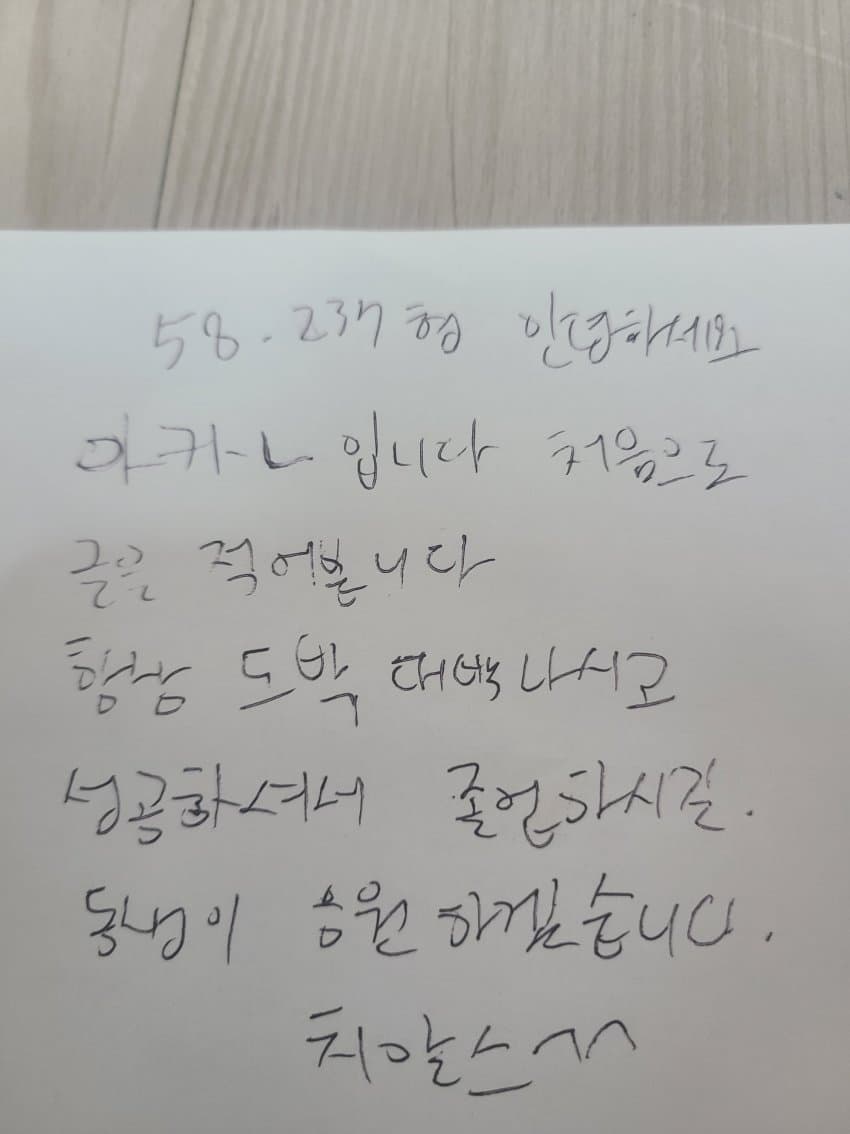 58.237형 안녕하세요
아카ㄴ입니다 처음으로
글은 적어봅니다
항상 도박 대박나시고
성공하셔서 졸업하시길.
동생이 응원하겠습니다.
치얼스^^